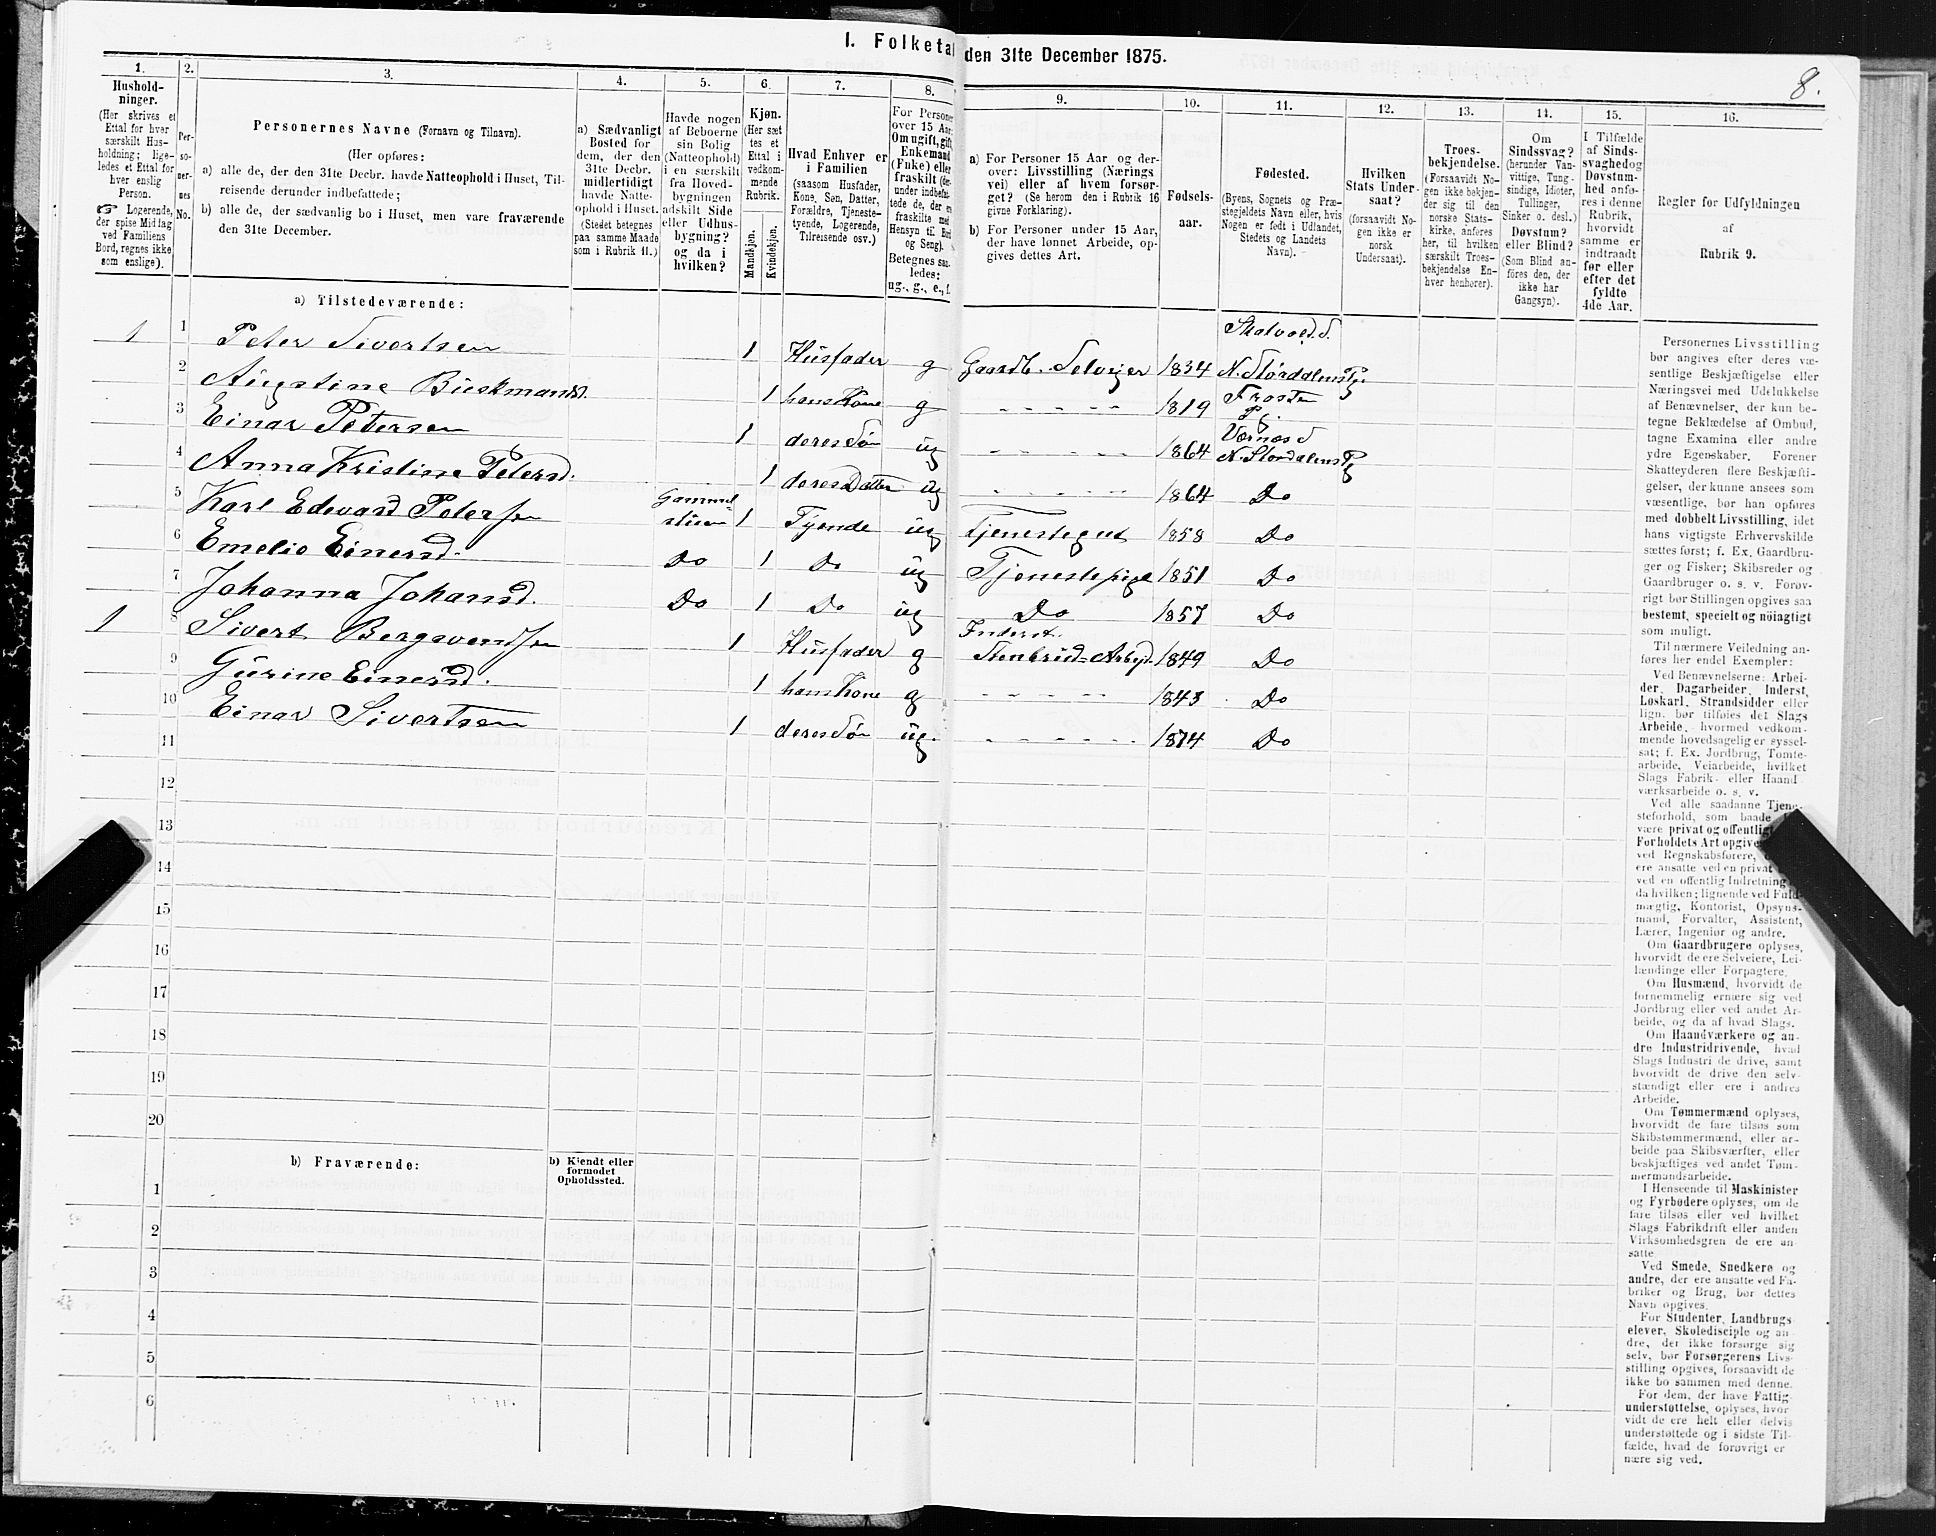 I. Folketal den 31te December 1875.
8.
1.
Hushold-
ninger.
(Her skrives et
Ettal for hver
særskilt Hus-
holdning; lige-
ledes et Ettal for
hver enslig
Person.
☞ Logerende,
der spise Middag
ved Familiens
Bord, regnes ikke
som enslige).
2.
Per-
so-
ner-
nes
No.
3.
Personernes Navne (Fornavn og Tilnavn).
(Her opføres:
a) alle de, der den 31te Decbr. havde Natteophold i Huset, Til-
reisende derunder indbefattede;
b) alle de, der sædvanlig bo i Huset, men vare fraværende
den 31te December.
4.
a) Sædvanligt
Bosted for
dem, der den
31te Decbr.
midlertidigt
havde Natte-
ophold i Huset.
(Stedet betegnes
paa samme Maade
som i Rubrik 11.)
5.
Havde nogen
af Beboerne
sin Bolig
(Natteophold)
i en særskilt
fra Hoved-
bygningen
adskilt Side
eller Udhus-
bygning?
og da i
hvilken?
6.
Kjøn.
(Her sæt-
tes et
Ettal i
vedkom-
mende
Rubrik.
Mandkjøn.
Kvindekjøn.
7.
Hvad Enhver er
i Familien
(saasom Husfader,
Kone, Søn, Datter,
Forældre, Tjeneste-
tyende, Logerende,
Tilreisende osv.)
8.
For Personer
over 15 Aar:
Om ugift, gift,
Enkemand
(Enke) eller
fraskilt
Betegnes saa-
ledes:
ug., g., e., f.
9.
a) For Personer 15 Aar og der-
over: Livsstilling (Nærings-
vei) eller af hvem forsør-
get? (Se herom den i Rubrik 16
givne Forklaring).
b) For Personer under 15 Aar,
der have lønnet Arbeide, op-
gives dettes Art.
10.
Fødsels-
aar.
11.
Fødested.
(Byens, Sognets og Præ-
stegjeldets Navn eller, hvis
Nogen er født i Udlandet,
Stedets og Landets
Navn).
12.
Hvilken
Stats Under-
saat?
(forsaavidt No-
gen ikke er
norsk
Undersaat).
13.
Troes-
bekjendelse.
(Forsaavidt No-
gen ikke bekjen-
der sig til den
norske Stats-
kirke, anføres
her, til hvilken
særskilt Troes-
bekjendelse En-
hver henhører).
14.
Om
Sindssvag?
(herunder Van-
vittige, Tung-
sindige, Idioter,
Tullinger,
Sinker o. desl.)
Døvstum?
eller Blind?
(Som Blind an-
føres den, der
ikke har
Gangsyn).
15.
I Tilfælde
af Sinds-
svaghed og
Døvstum-
hed anfø-
res i denne
Rubrik,
hvorvidt
samme er
indtraadt
før eller
efter det
fyldte
4de Aar.
16.
Regler for Udfyldningen
af
Rubrik 9.
a) Tilstedeværende:
1 1 Peter Sivertsen 1 Husfader g Gaardb. Selveier 1834 Skatvold S. N. Størdalens Pg.
2 Augstine Buekmansd. 1 hans Kone g - - - - - 1819 Frosten Pg.
3 Einar Petersen 1 deres Søn ug - - - - - 1864 Værnes S N. Stordalens Pg
4 Anna Kristine Petersd. 1 deres Datter ug - - - - - 1864 Do
5 Karl Edevard Petersen Gammelstuen 1 Tyende ug Tjenestegut 1858 Do
6 Emelie Einersd. Do 1 Do ug Tjenestepige 1851 Do
7 Johanna Johansd. Do 1 Do ug Do 1857 Do
1 8 Sivert Bergsvendsen 1 Husfader g Inderst. Stenbrud-Arbejd. 1849 Do
9 Gurine Einersd. 1 hans Kone g - - - - - 1843 Do
10 Einar Sivertsen 1 deres Søn ug. - - - - - 1874 Do
11
12
13
14
15
16
17
18
19
20
b) Fraværende:
b) Kjendt eller
formodet
Opholdssted.
1
2
3
4
5
6
Personernes Livsstilling
bør angives efter deres væ-
sentlige Beskjæftigelse eller
Næringsvei med Udelukkelse
af Benævnelser, der kun be-
tegne Beklædelse af Ombud,
tagne Examina eller andre
ydre Egenskaber. Forener
Skatteyderen flere Beskjæfti-
gelser, der kunne ansees som
væsentlige, bør han opføres
med dobbelt Livsstilling, idet
hans vigtigste Erhvervskilde
sættes først; f. Ex. Gaardbru-
ger og Fisker; Skibsreder og
Gaardbruger o. s. v. Forøv-
rigt bør Stillingen opgives saa
bestemt, specielt og nöiagtigt
som muligt.
Til nærmere Veiledning an-
føres her endel Exempler:
Ved Benævnelserne: Arbei-
der, Dagarbeider, Inderst,
Løskarl, Strandsidder eller
lign. bør tilføies det Slags
Arbeide, hvormed vedkom-
mende hovedsagelig er syssel-
sat; f. Ex. Jordbrug, Tomte-
arbeide, Veiarbeide, hvilket
Slags Fabrik- eller Haand-
værksarbeide o. s. v.
Ved alle saadanne Tjene-
steforhold, som baade
være privat og offentligt
Forholdets Art opgives
ved Regnskabsførere,
ere ansatte ved en privat
ved en offentlig Indretning
da hvilken; lignende ved Fuld-
mægtig, Kontorist, Opsyns-
mand, Forvalter, Assistent,
Lærer, Ingeniør og andre.
Om Gaardbrugere oplyses,
hvorvidt de ere Selveiere, Lei-
lændinge eller Forpagtere.
Om Husmænd, hvorvidt de
fornemmelig ernære sig ved
Jordbrug eller ved andet Ar-
beide, og da af hvad Slags.
Om Haandværkere og an-
dre Industridrivende, hvad
Slags Industri de drive, samt
hvorvidt de drive den selv-
stændigt eller ere i andres
Arbeide.
Om Tømmermænd oplyses,
hvorvidt de fare tilsøs som
Skibstømmermænd, eller ar-
beide paa Skibsværfter, eller
beskjæftiges ved andet Tøm-
mermandsarbeide.
I Henseende til Maskinister
og Fyrbødere oplyses, om de
fare tilsøs eller ved hvilket
Slags Fabrikdrift eller anden
Virksomhedsgren de ere an-
satte.
Ved Smede, Snedkere og
andre, der ere ansatte ved Fa-
briker og Brug, bør dettes
Navn opgives.
For Studenter, Landbrugs-
elever, Skoledisciple og an-
dre, der ikke forsørge sig
selv, bør Forsørgerens Livs-
stilling opgives, forsaavidt de
ikke bo sammen med denne.
For dem, der have Fattig-
understøttelse, oplyses, hvor-
vidt de ere helt eller delvis
understøttede og i sidste Til-
fælde, hvad de forøvrigt er-
nære sig ved.